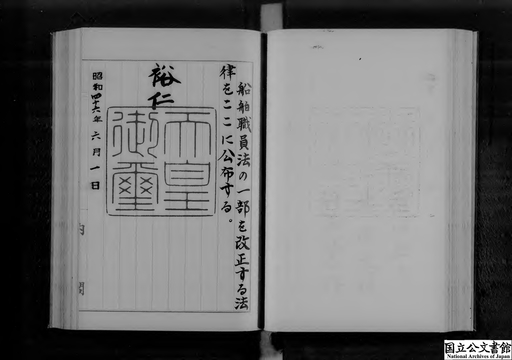 船舶職員法の一部を改正する法
律をここに公布する。
裕仁
天皇
御璽
昭和四十六年六月一日
内
閣
国立公文書館
National Archives of Japan